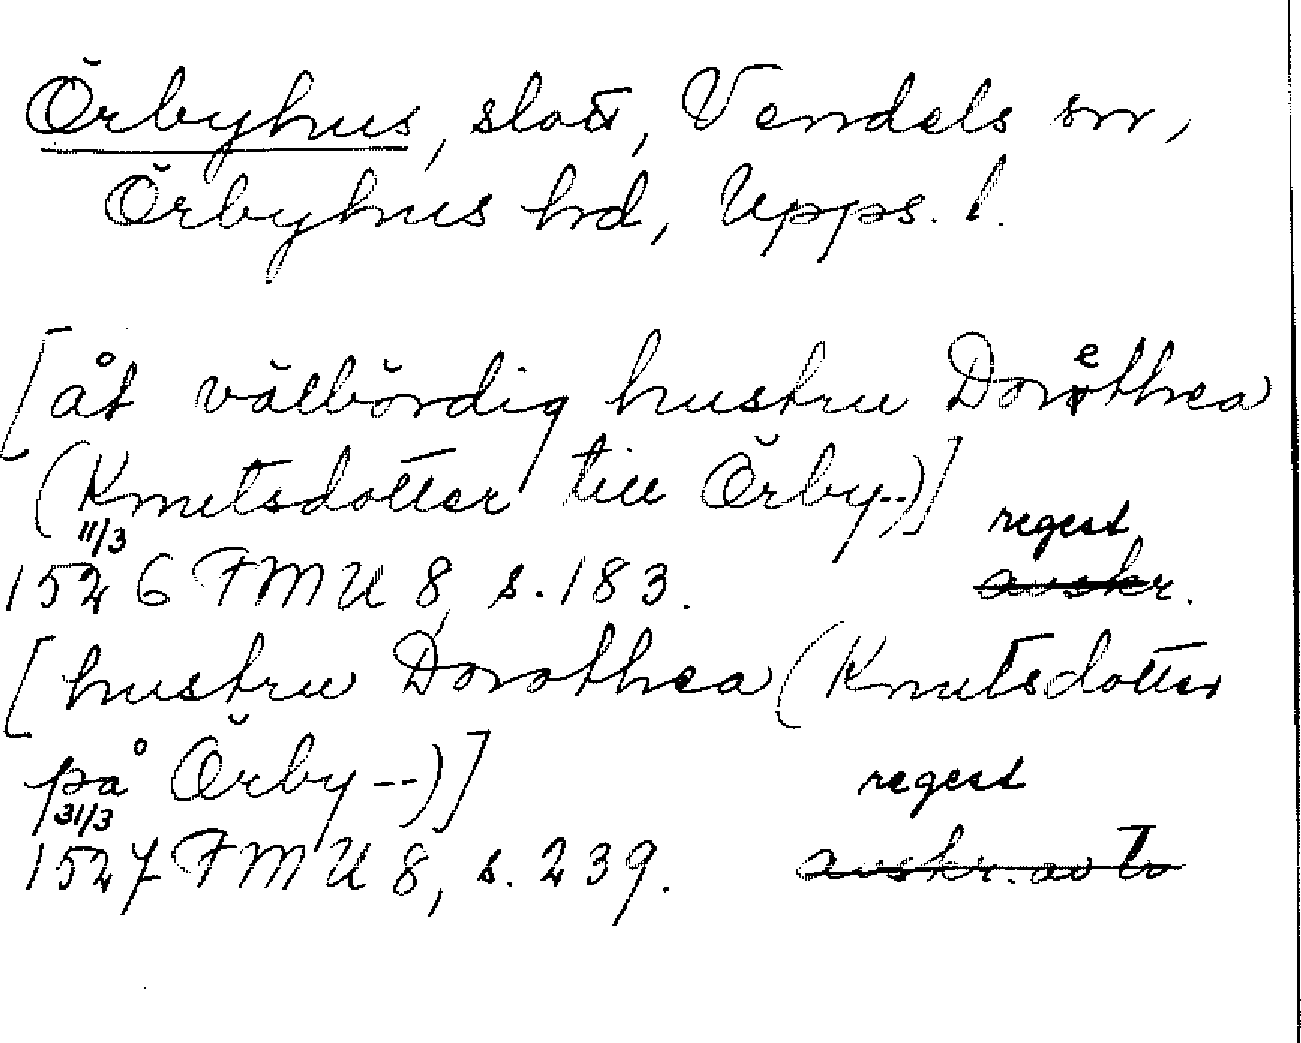 Örbyhus, slott, Vendels sn,
Örbyhus hd, Upps. l.
[åt välbördig hustru Dorethea
(Knutsdotter till Örby--)]
11/3 regest
1526 FMU 8, s. 183. avskr.
[hustru Dorothea (Knutsdotter
på Örby --)]
31/3 regest
1527 FMU 8, s. 239. avskr. av